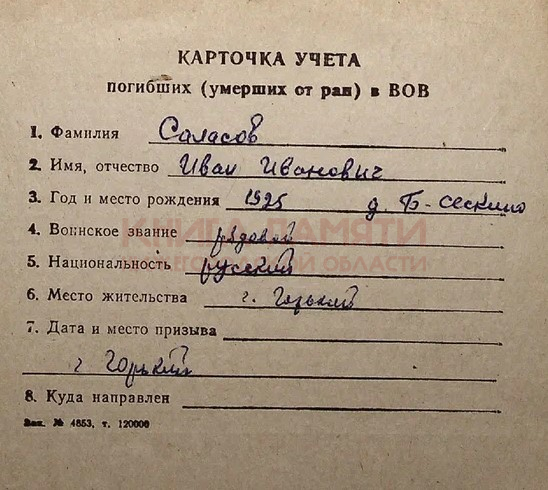 КАРТОЧКА УЧЕТА
погибших (умерших от ран) в ВОВ
1. Фамилия Саласов
2. Имя, отчество Иван Иванович
3. Год и место рождения 1925 д. Б-Сескино
КНИГА ПАМЯТИ
4. Воинское звание рядовой
НИЖЕГОРОДСКОЙ ОБЛАСТИ
5. Национальность русский
6. Место жительства г. Горький
7. Дата и место призыва
г Горький
8. Куда направлен
Зак. № 4853, т. 120000